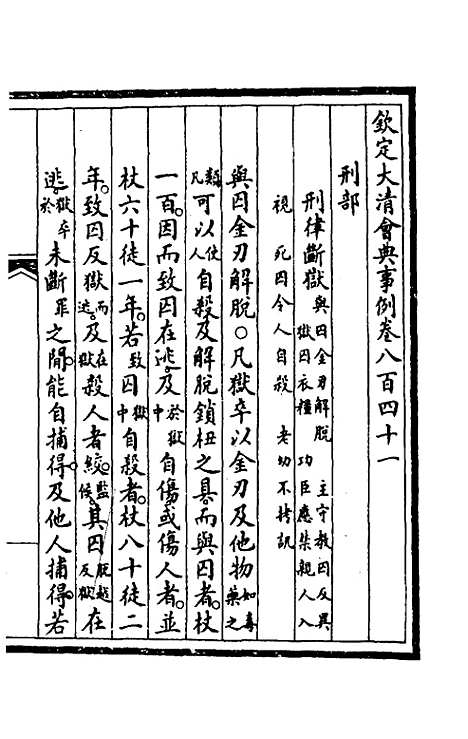 欽定大清會典事例卷八百四十一
刑部
刑律斷獄 與囚金刃解脫 主守教囚反異
獄囚衣糧 功臣應禁親人入
視 死囚令人自殺 老幼不拷訊
與囚金刃解脫○凡獄卒以金刃及他物 如毒藥之
類 凡可以 使人 自殺及解脫鎖杻之具而與囚者杖
一百因而致囚在逃及 於獄中 自傷或傷人者並
杖六十徒一年若 致 囚 獄中 自殺者杖八十徒二
年致囚反獄 而逃 及 在獄 殺人者絞 監候 其囚 脫越反獄 在
逃 獄卒於 未斷 罪 之閒能自捕得及他人捕得若